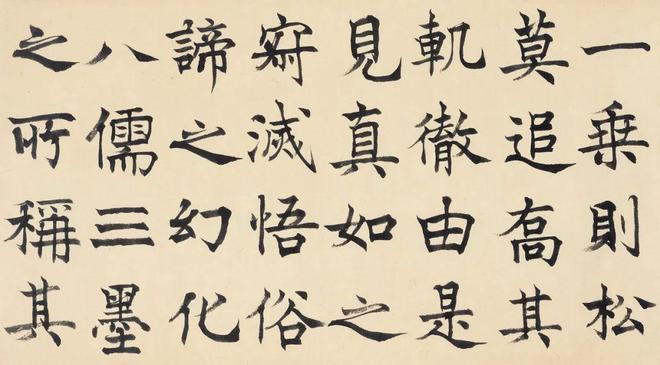 一乗則松
莫追喬其
軌徹由是
見真如之
寂滅悟俗
諦之幻化
八儒三墨
之所稱其